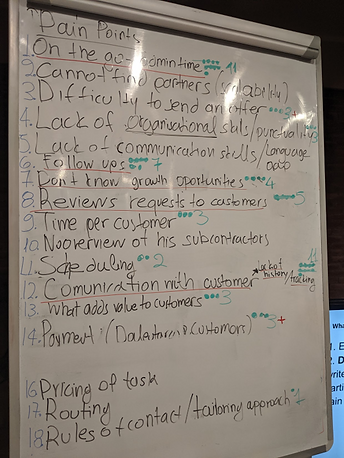 Pain Points
1. On the go admin time 11
2. Cannot find partners (scalability)
3. Difficulty to send an offer 3+
4. Lack of Organisational skills/punctuality 3
5. Lack of communication skills/Language
6. Follow ups 7
7. Don't know growth oportunities 4
8. Reviews requests to customers 5
9. Time per customer 3
10. No overview of his subcontractors
11. Scheduling 2
12. Comunication with customer lack of history/tracking 11
13. What adds value to customers 3
14. Payment (& Customers) 3+
16. Pricing of task
17. Routing
18. Rules of contact/tailoring approach 1